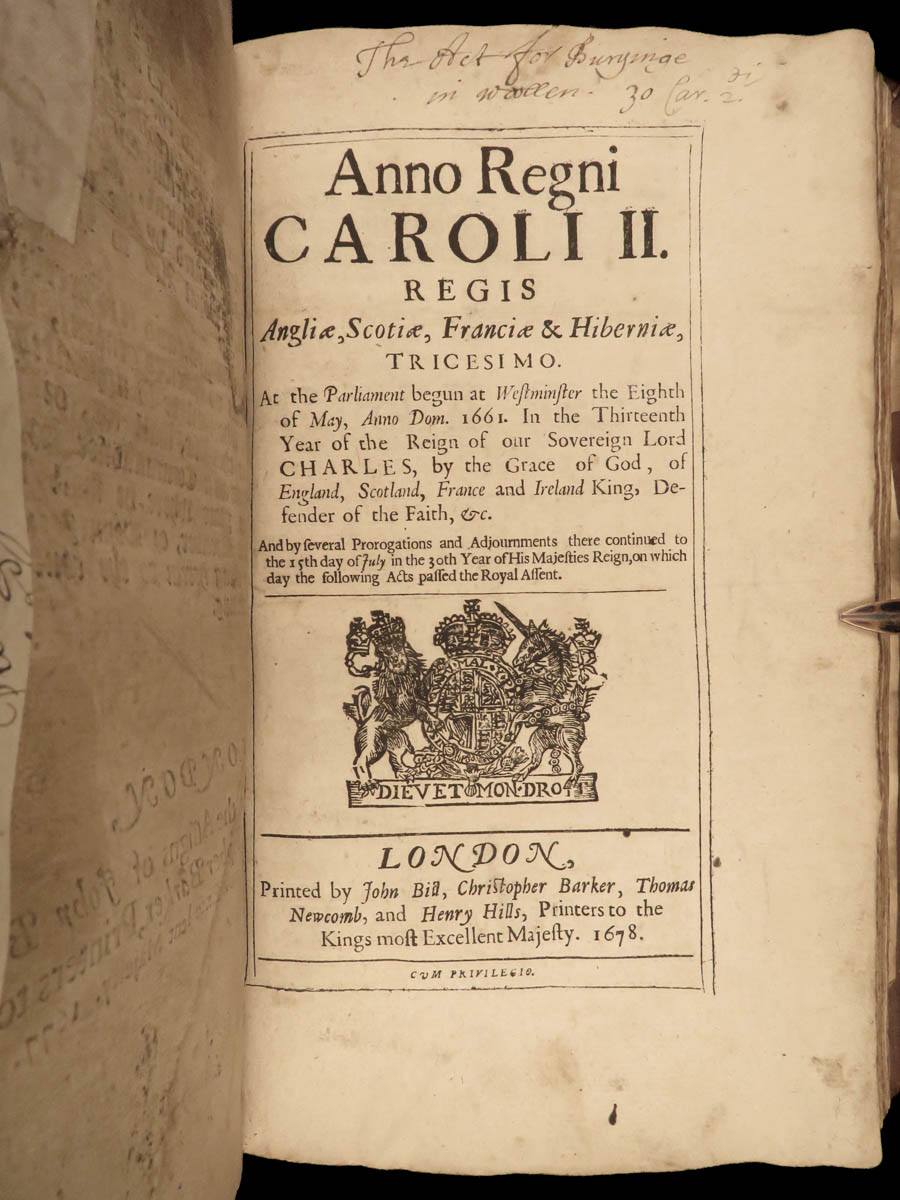 The Act for Buryinge
in woollen. 30 Car. 2.di
Anno Regni
CAROLI II.
REGIS
Angliæ, Scotiæ, Franciæ & Hiberniæ,
TRICESIMO.
At the Parliament begun at Weſtminſter the Eighth
of May, Anno Dom. 1661. In the Thirteenth
Year of the Reign of our Sovereign Lord
CHARLES, by the Grace of God, of
England, Scotland, France and Ireland King, De-
fender of the Faith, &c.
And by ſeveral Prorogations and Adjournments there continued to
the 15th day of July in the 30th Year of His Majeſties Reign, on which
day the following Acts paſſed the Royal Aſſent.
DIEV ET MON DROIT
LONDON,
Printed by John Bill, Chriſtopher Barker, Thomas
Newcomb, and Henry Hills, Printers to the
Kings moſt Excellent Majeſty. 1678.
CUM PRIVILEGIO.